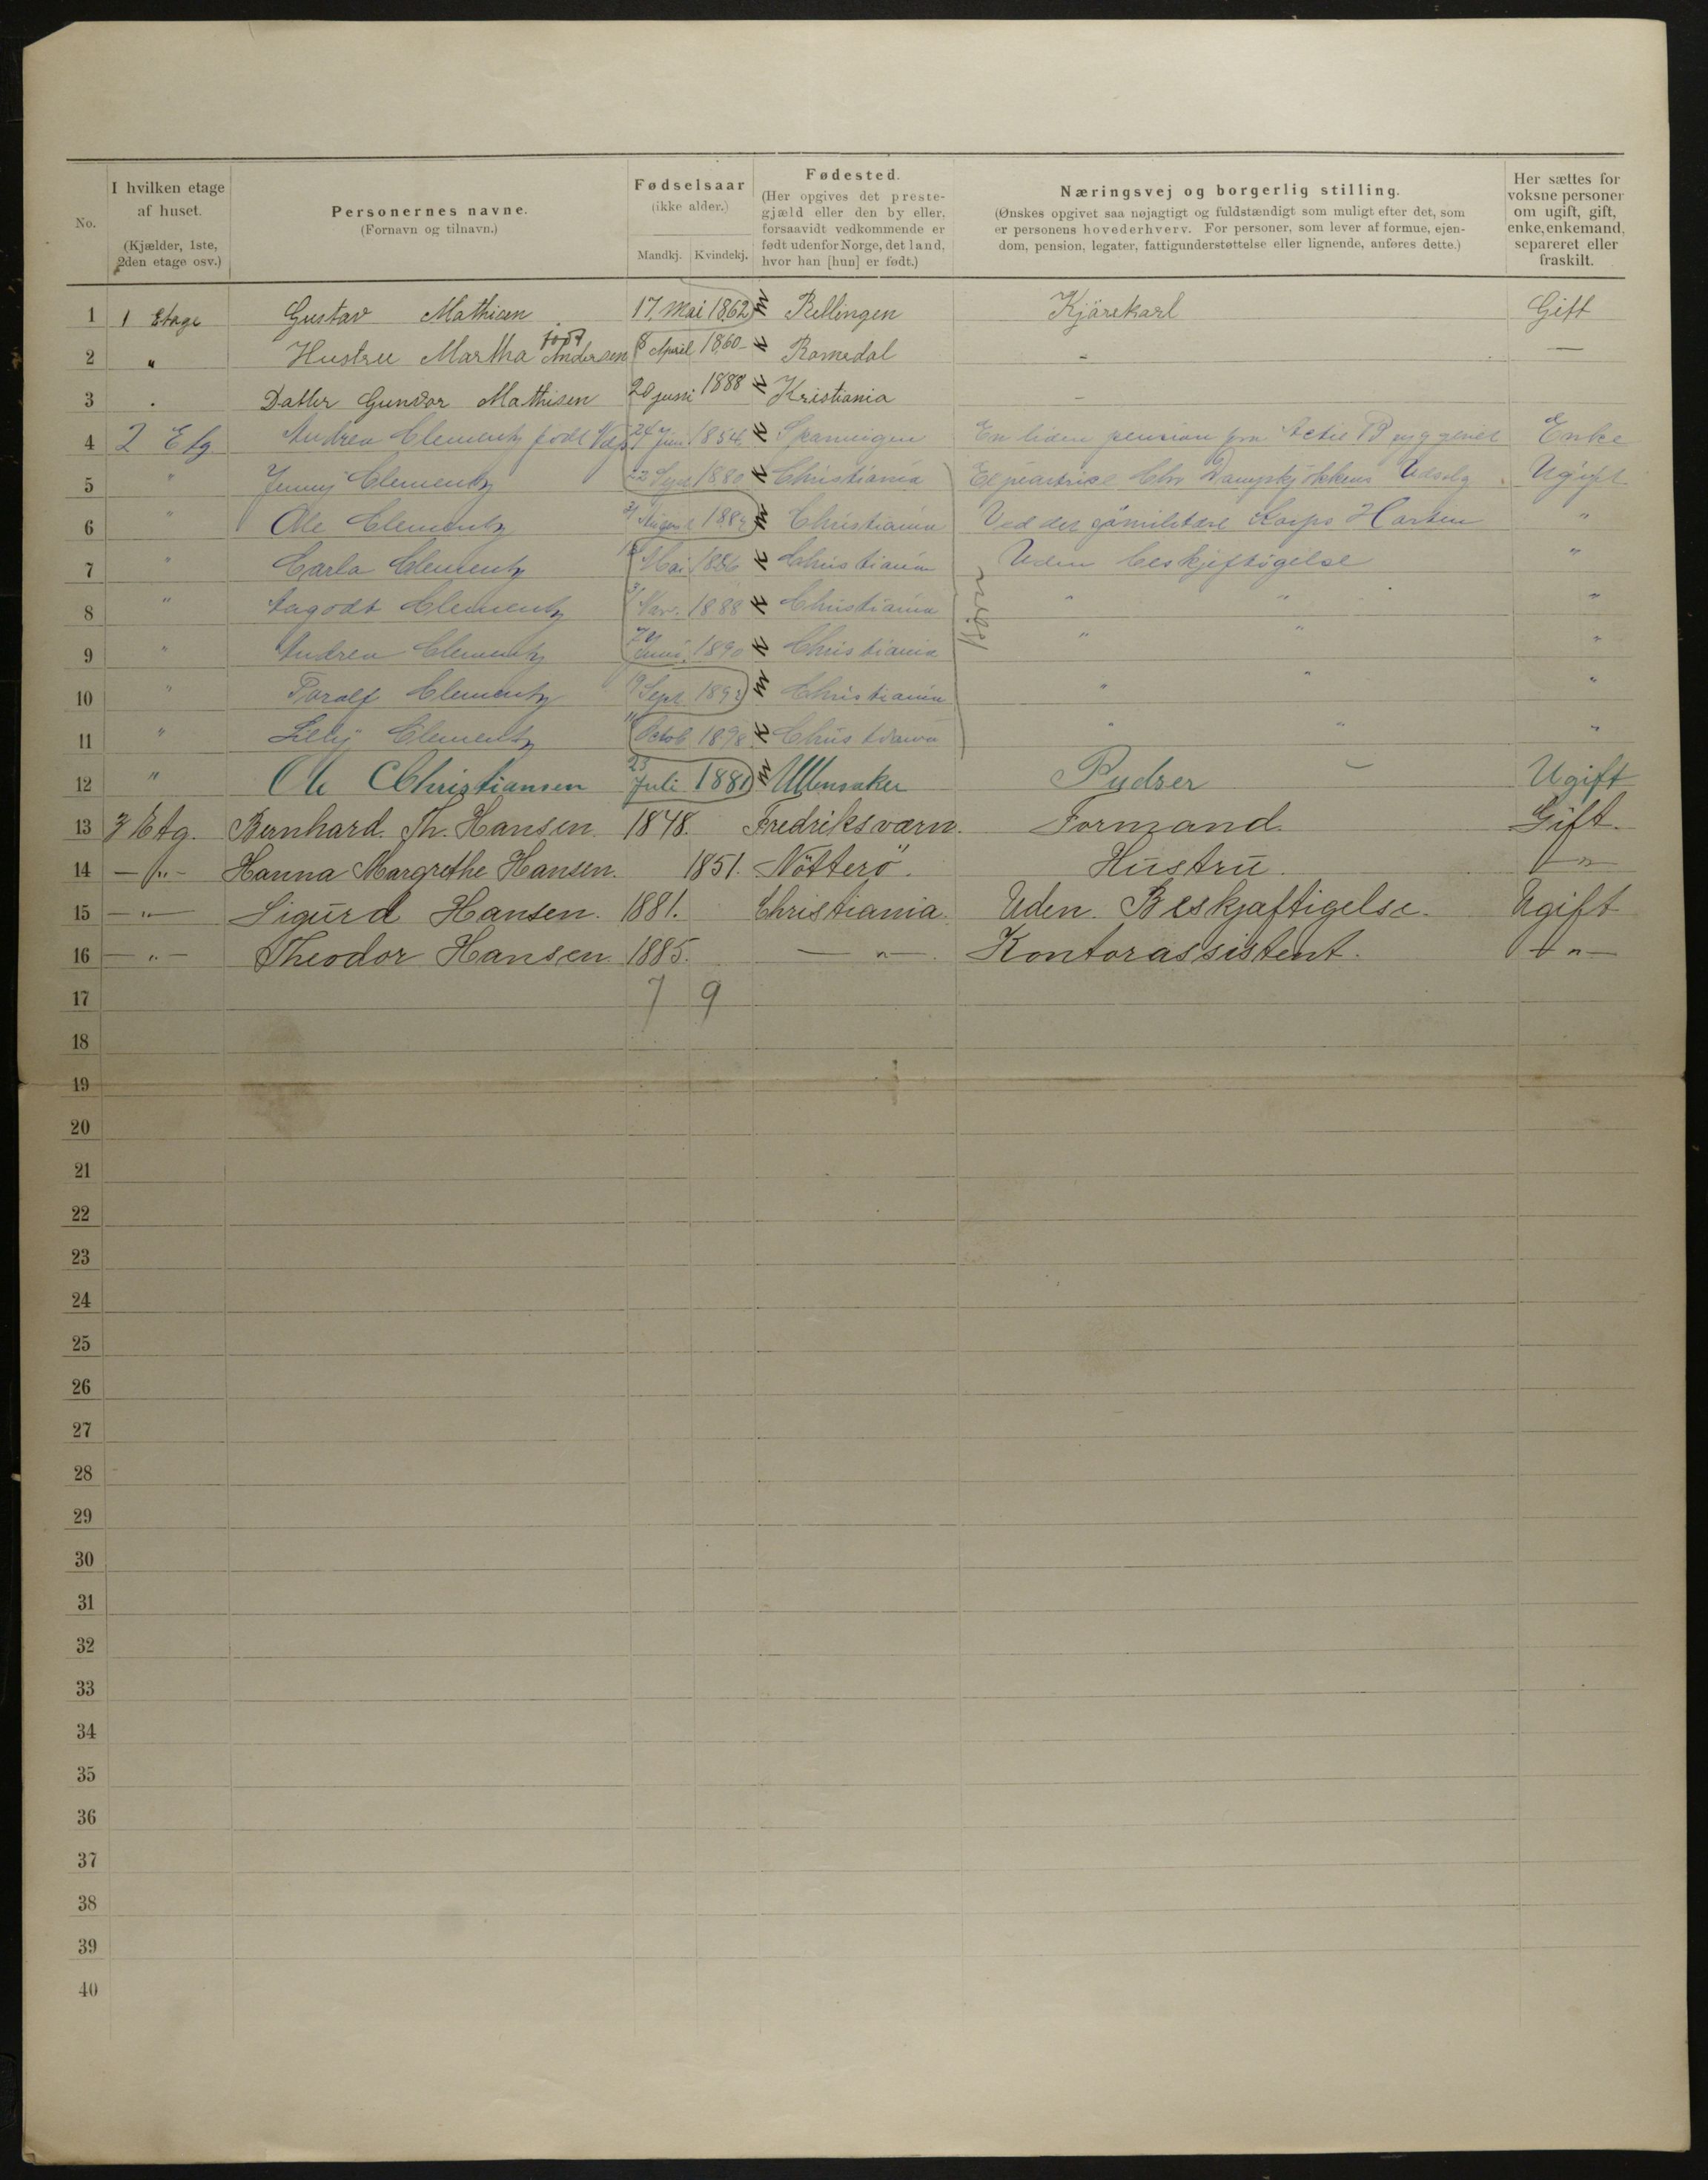 No.
I hvilken etage af huset.
(Kjælder, 1ste, 2den etage osv.)
Personernes navne.
(Fornavn og tilnavn.)
Fødselsaar
(ikke alder.)
Mandkj. Kvindekj.
Fødested.
(Her opgives det prestegjæld eller den by eller, forsaavidt vedkommende er født udenfor Norge, det land, hvor han [hun] er født.)
Næringsvej og borgerlig stilling.
(Ønskes opgivet saa nøjagtigt og fuldstændigt som muligt efter det, som er personens hovederhverv. For personer, som lever af formue, ejendom, pension, legater, fattigunderstøttelse eller lignende, anføres dette.)
Her sættes for voksne personer om ugift, gift, enke, enkemand, separeret eller fraskilt.
1 1 Etage Gustav Mathisen 17. Mai 1862 m Rellingen Kjörekarl Gift
2 " Hustru Martha født Andersen 8 April 1860 - k Romedal - —
3 . Datter Gundor Mathisen 20 juni 1888 k Kristiania -
4 2 Etg Andrea Clementz født 24 1854 k En liden pension fra Actie Enke
5 " Jenny Clementz 22 Sept 1880 k Christiania Chr Dampkjökkens Udsalg Ugift
6 " Ole Clementz August m Christiania Ved det Korps "
7 " Carla Clementz Mai 1886 k Christiania Uden beskjeftigelse "
8 " Aagodt Clementz Nov. 1888 k Christiania " " "
9 " Andrea Clementz Juni 1890 k Christiania " " "
10 " Toralf Clementz 19 Sept. 1892 m Christiania " " "
11 " Lilly Clementz 11 Octob 1898 k Christiania " " "
12 " Ole Christiansen 23 Juli 1881 m Ullensaker Pudser Ugift
13 3 Etg. Bernhard. Th. Hansen. 1848. Fredriksværn. Formand. Gift.
14 — " - Hanna Margrethe Hansen. 1851. Nötterö. Hustru. — " —
15 — " — Sigurd Hansen. 1881. Christiania. Uden Beskjæftigelse. Ugift
16 — " — Theodor Hansen. 1885. — " — Kontorassistent. — " —
17 7 9
18
19
20
21
22
23
24
25
26
27
28
29
30
31
32
33
34
35
36
37
38
39
40